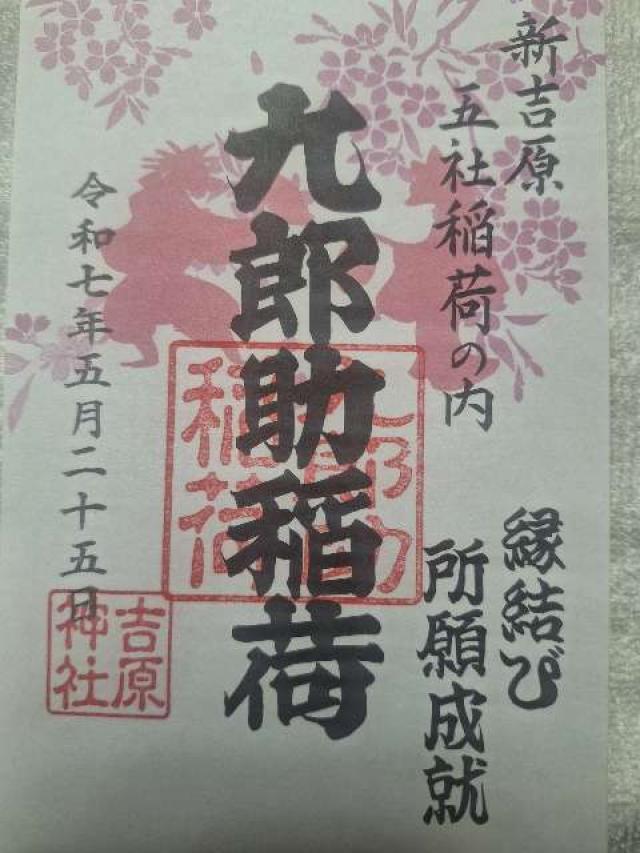 新吉原
五社稲荷の内
縁結び
所願成就
九郎助稲荷
九郎助
稲荷
令和七年五月二十五日
吉原
神社